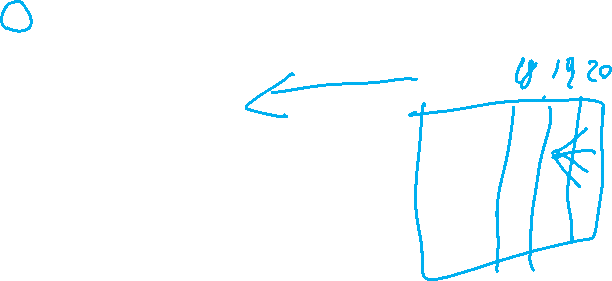 18 19 20